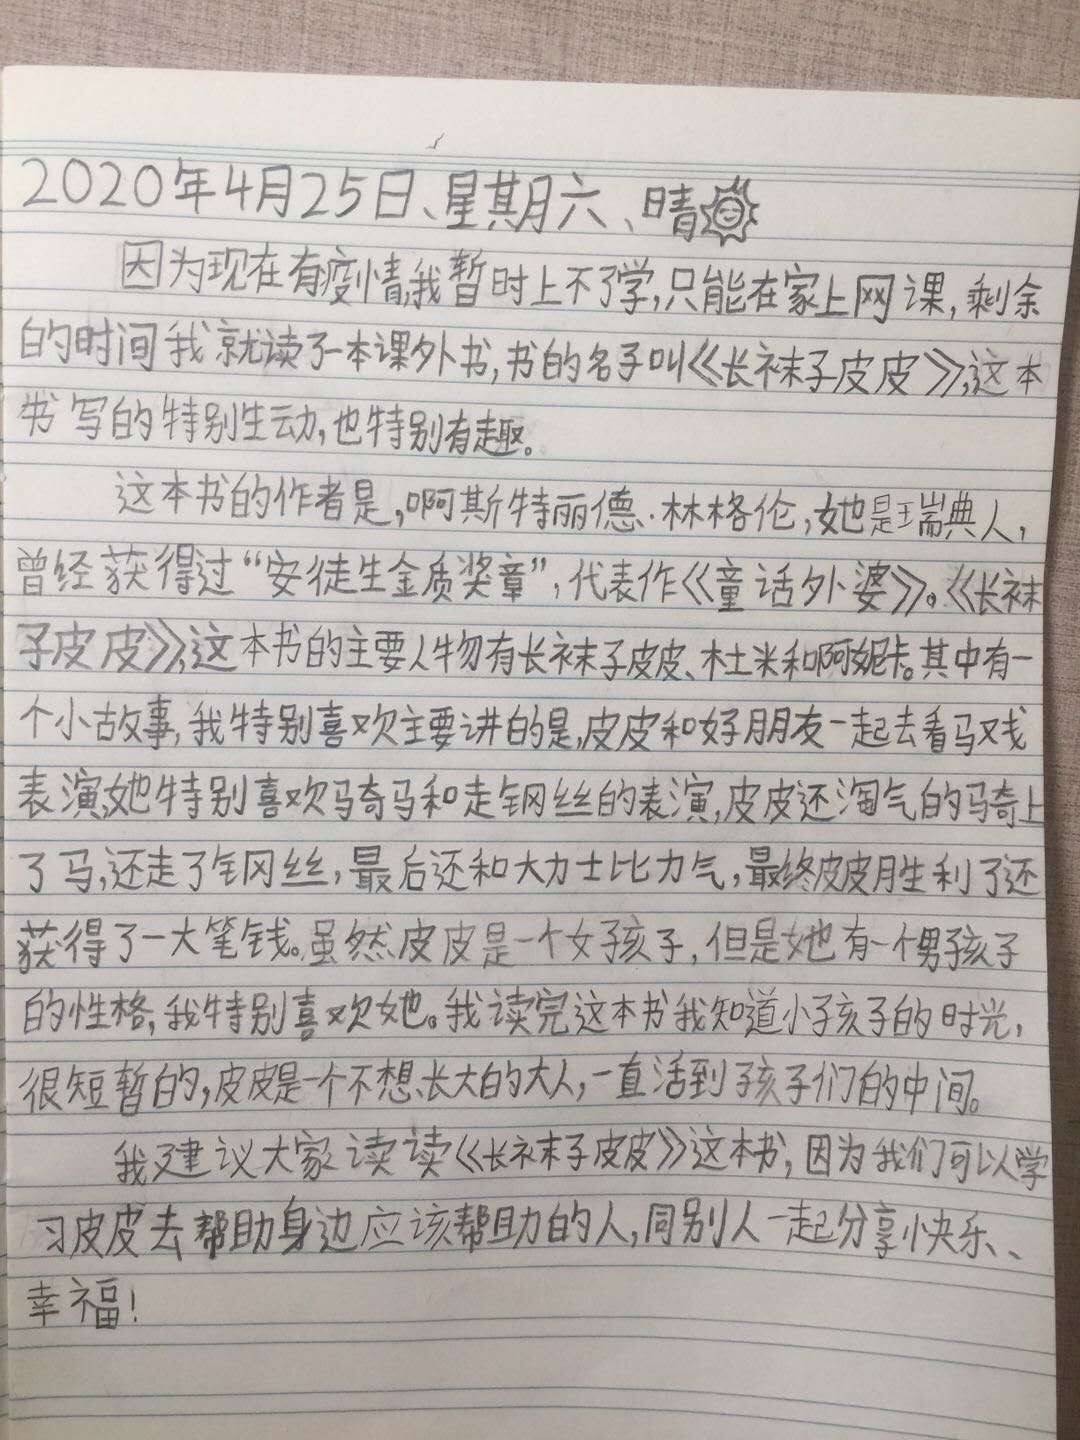 2020年4月25日、星期六、晴
因为现在有疫情,我暂时上不了学,只能在家上网课,剩余
的时间我就读了一本课外书,书的名子叫《长袜子皮皮》,这本
书写的特别生动,也特别有趣。
这本书的作者是,啊斯特丽德·林格伦,她是瑞典人,
曾经获得过“安徒生金质奖章”,代表作《童话外婆》。《长袜
子皮皮》,这本书的主要人物有长袜子皮皮、杜米和啊妮卡。其中有一
个小故事,我特别喜欢主要讲的是,皮皮和好朋友一起去看马戏
表演,她特别喜欢骑马和走钢丝的表演,皮皮还淘气的骑上
了马,还走了钢丝,最后还和大力士比力气,最终皮皮胜利了还
获得了一大笔钱。虽然皮皮是一个女孩子,但是她有一个男孩子
的性格,我特别喜欢她。我读完这本书我知道小孩子的时光,
很短暂的,皮皮是一个不想长大的大人,一直活到孩子们的中间。
我建议大家读读《长袜子皮皮》这本书,因为我们可以学
习皮皮去帮助身边应该帮助的人,同别人一起分享小快乐、
幸福!